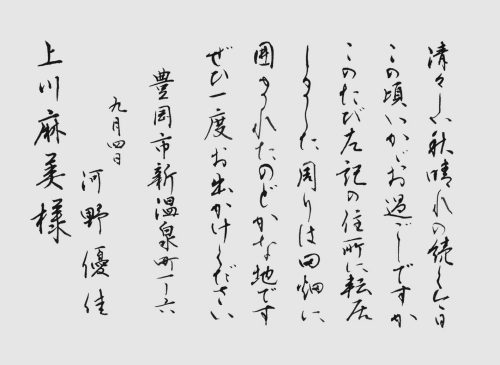 清々しい秋晴れの続く今日
この頃いかがお過ごしですか
このたび左記の住所に転居
しました 周りは田畑に
囲まれたのどかな地です
ぜひ一度お出かけください
豊岡市新温泉町一ー六
九月四日
河野優佳
上川麻美様